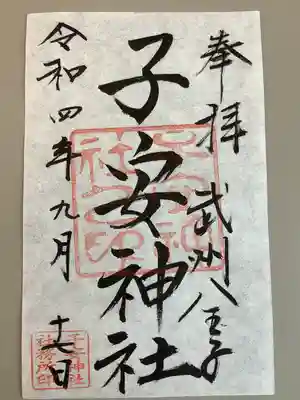 奉拝 武州八王子
子安神社
令和四年九月十七日
子安神社
社務所印